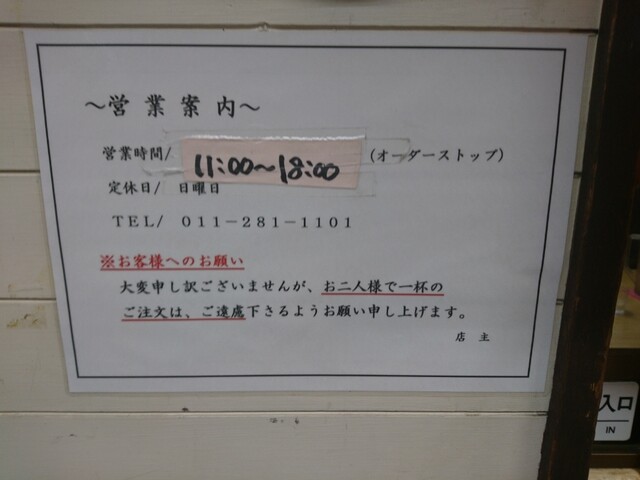 ～営業案内～
営業時間/ 11:00～18:00 (オーダーストップ)
定休日/ 日曜日
TEL/ 011－281－1101
※お客様へのお願い
大変申し訳ございませんが、お二人様で一杯の
ご注文は、ご遠慮下さるようお願い申し上げます。
店主
入口
IN